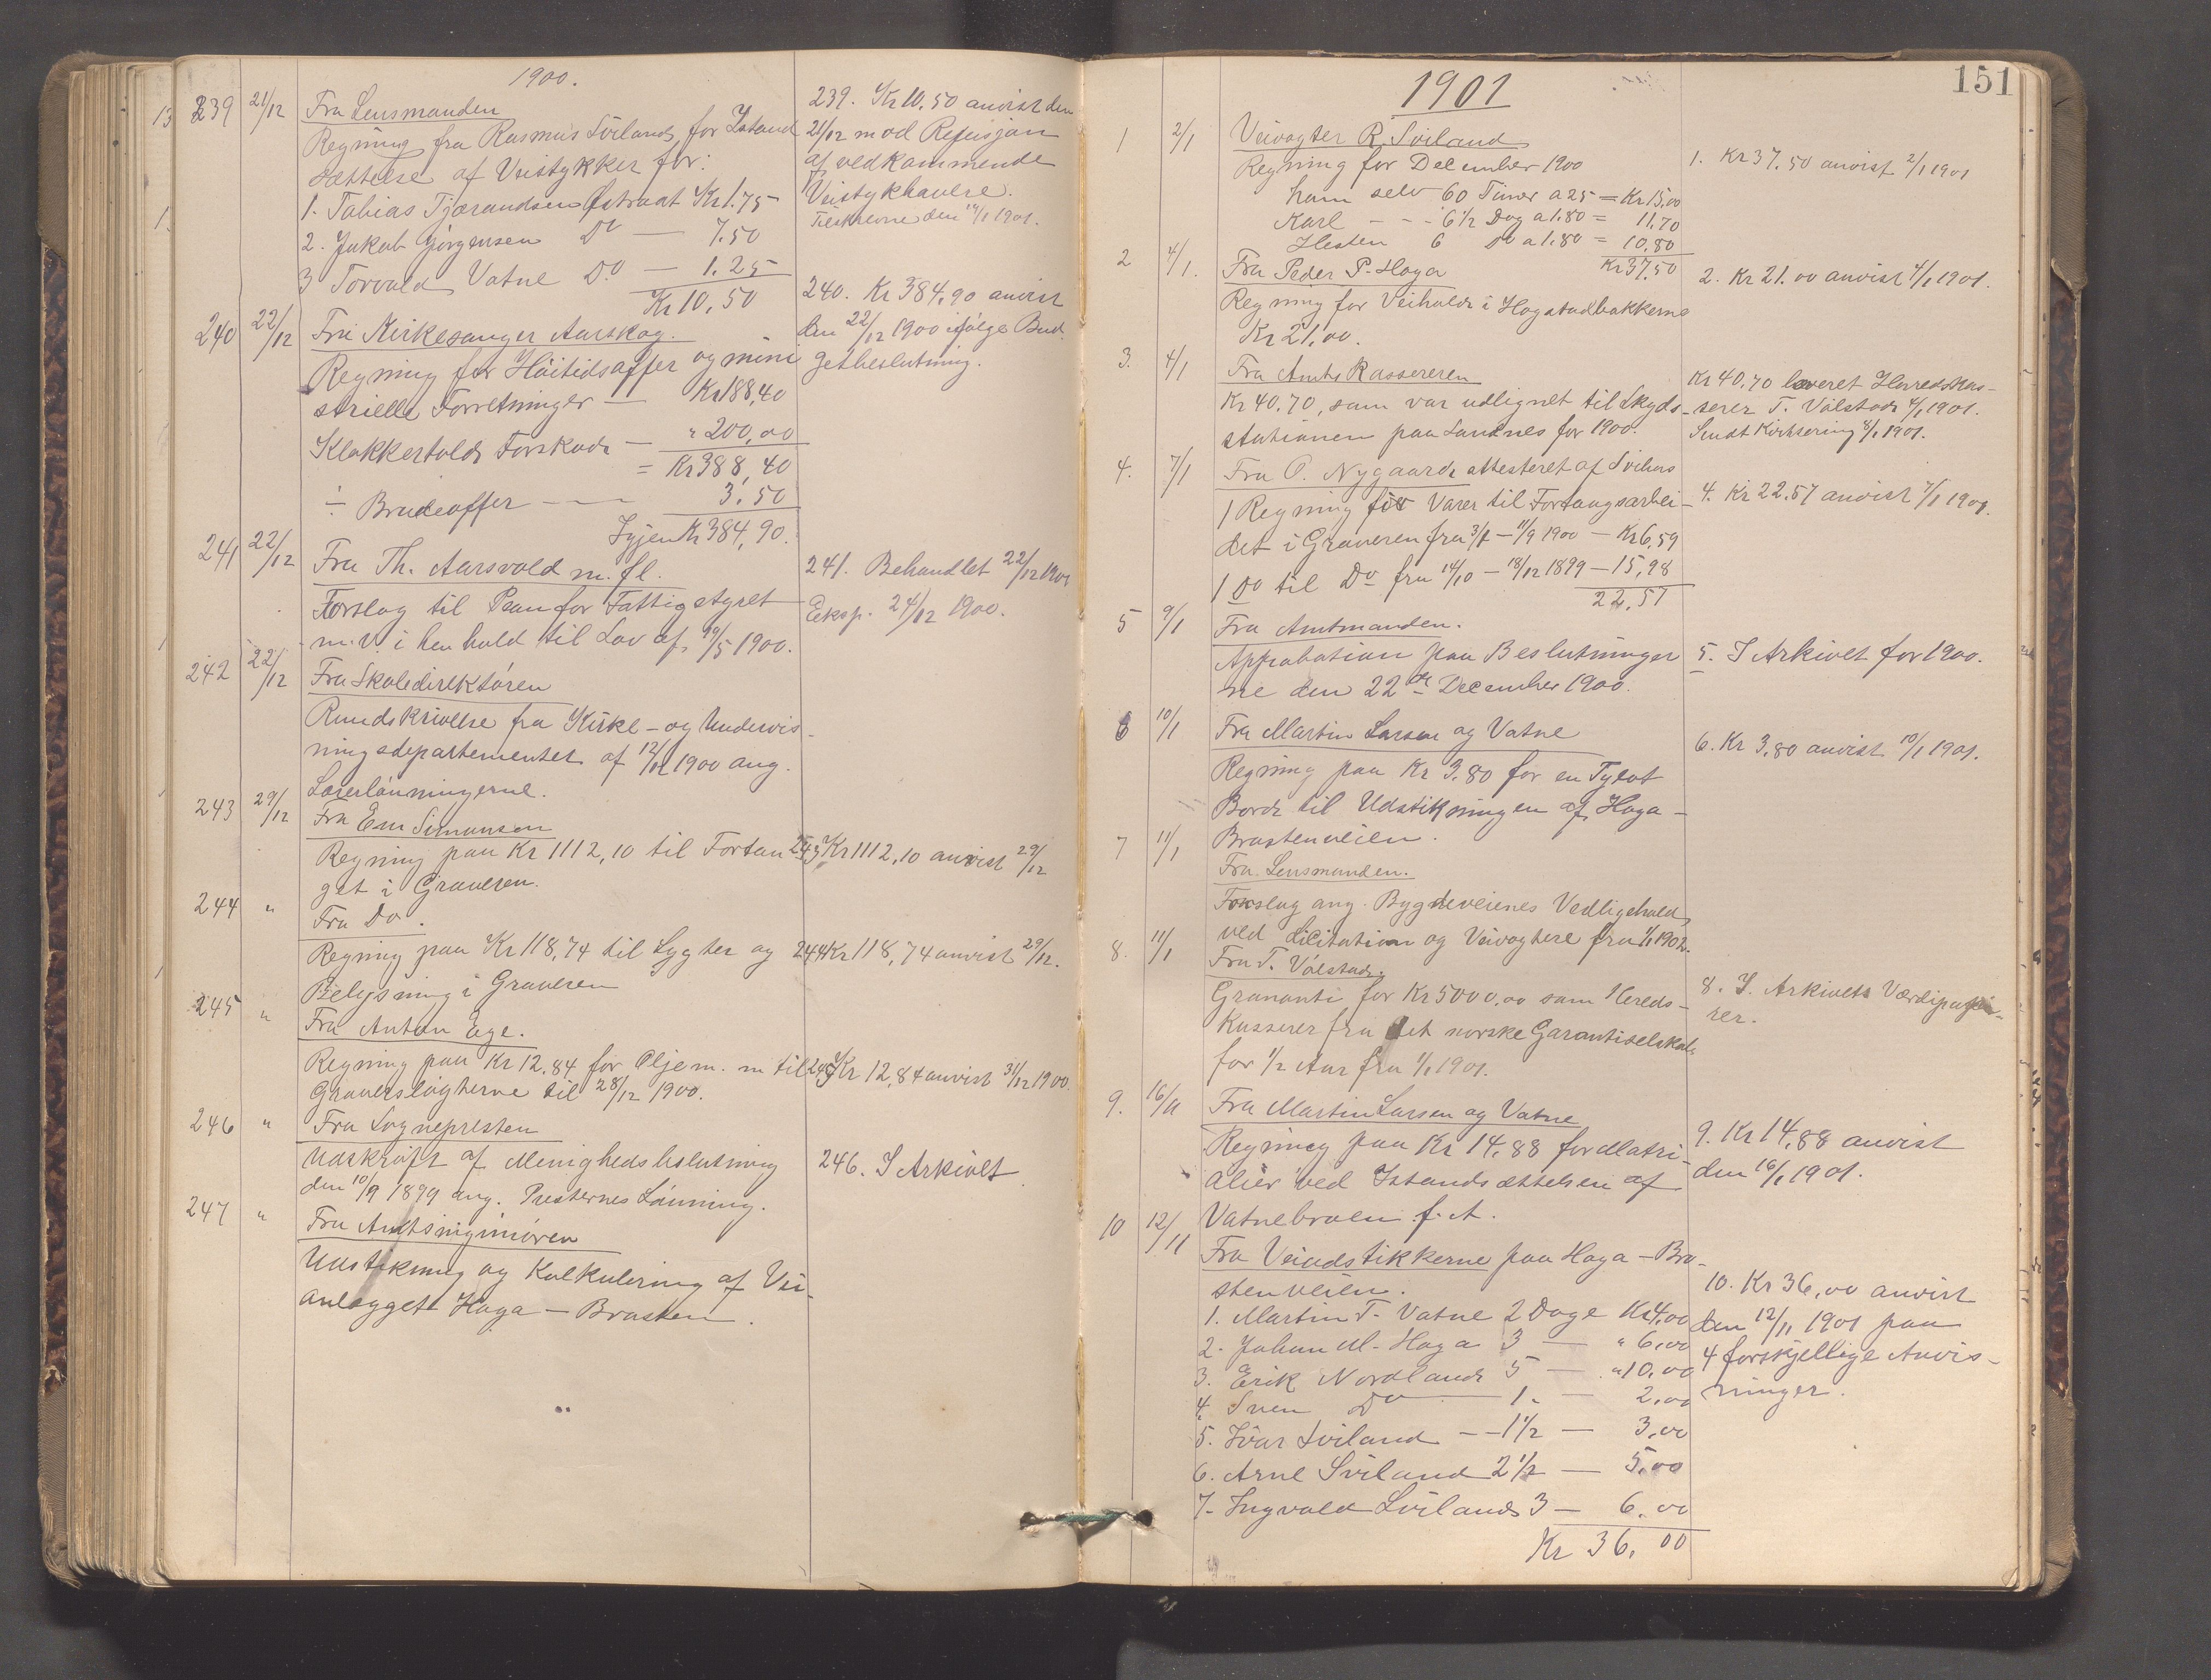 1900.
239 21/12 Fra Lensmanden
Regning fra Rasmus Sviland for Istand
sættelse af Veistykker for:
1. Tobias Tjørandsen Østraat Kr 1.75
2. Jakob Jörgensen Do — 7.50
3 Torvald Vatne Do — 1.25
Kr 10,50
239. Kr 10,50 anvist den
21/12 mod Refusjon
af vedkommende
Veistykhavere.
Tilskrevne den 14/1 1901.
240 22/12 Fra Kirkesanger Aarskog.
Regning for Höitidsoffer og mini
strielle Forretninger — Kr 188,40
Klokkertolds Forskud — " 200,00
= Kr 388,40
÷ Brudeoffer — 3.50
Igjen Kr 384,90.
240. Kr 384,90 anvist
den 22/12 1900 ifölge Bud
getbeslutning.
241 22/12 Fra Th. Aarsvold m. fl.
Forslag til Plan for Fattigstyret
m.v. i henhold til Lov af 19/5 1900.
241. Behandlet 22/12 1900
Eksp. 24/12 1900.
242 22/12 Fra Skoledirektören
Rundskrivelse fra Kirke- og Undervis-
ningsdepartementet af 12/12 1900 ang.
Lærerlönningerne.
243 29/12 Fra Em Simonsen
Regning paa Kr 1112,10 til Fortau
get i Graveren.
243 Kr 1112,10 anvist 29/12
244 " Fra Do.
Regning paa Kr 118,74 til Lygter og
Belysning i Graveren
244 Kr 118,74 anvist 29/12.
245 " Fra Anton Ege.
Regning paa Kr 12,84 for Olje m. m til
Graverslögterne til 28/12 1900.
245 Kr 12,84 anvist 31/12 1900.
246 " Fra Sognepresten
Udskrift af Menighedsbeslutning
den 10/9 1899 ang. Presternes Lönning.
246. I Arkivet.
247 " Fra Amtsingeniören
Udstikning og Kalkulering af Vei-
anlægget Hoga — Brasten.
151
1901
1 2/1 Veivogter R. Sviland
Regning for December 1900
ham selv 60 Timer a 25 = Kr 15,00
Karl - - - 6 1/2 Dag a 1.80 = 11,70
Hesten 6 Do a 1.80 = 10.80
Kr 37.50
1. Kr 37.50 anvist 2/1 1901
2 4/1. Fra Peder P. Hoga
Regning for Veihold i Hogstadbakkerne
Kr 21,00.
2. Kr 21.00 anvist 4/1 1901.
3. 4/1 Fra Amtskassereren
Kr 40,70, som var udlignet til Skyds-
stationen paa Sandnes for 1900.
Kr 40,70 leveret Herredskas-
serer T. Válstad 4/1 1901.
Sendt Kvittering 8/1 1901.
4. 7/1 Fra O. Nygaard, attesteret af Svihus
1 Regning for Varer til Fortaugsarbei-
det i Graveren fra 3/8 - 11/9 1900 — Kr 6,59
1 Do til Do fra 14/10 - 18/12 1899 — 15,98
22,57
4. Kr 22.57 anvist 7/1 1901.
5 9/1 Fra Amtmanden.
Approbation paa Beslutninger
ne den 22de December 1900.
5. I Arkivet for 1900.
6 10/1 Fra Martin Larsen og Vatne
Regning paa Kr 3,80 for en Tylvt
Bord til Udstikningen af Hoga-
Brastenveien.
6. Kr 3,80 anvist 10/1 1901.
7 11/1 Fra Lensmanden.
Forslag ang. Bygdeveienes Vedligehold,
ved Licitation og Veivogtere fra 1/1 1902.
8. 11/1 Fra T. Válstad.
Grananti for Kr 5000,00 som Hereds-
kasserer fra det norske Garantiselskab
for 1/2 Aar fra 1/1 1901.
8. I. Arkivets Værdipapi-
rer.
9. 16/11 Fra Martin Larsen og Vatne
Regning paa Kr 14,88 for Matri-
alier ved Istandsættelsen af
Vatnebroen f. A.
9. Kr 14,88 anvist
den 16/1 1901.
10 12/11 Fra Veiudstikkerne paa Hoga - Bra-
stenveien.
1. Martin T. Vatne 2 Dage Kr 4,00
2. Johan M. Hoga 3 — " 6,00
3. Erik Nordland 5 — " 10,00
4. Sven Do 1. — 2,00
5. Ivar Sviland - - 1 1/2 — 3,00
6. Arne Sviland 2 1/2 — 5,00
7. Ingvald Sviland 3 — 6,00
Kr 36,00
10. Kr 36,00 anvist
den 12/11 1901 paa
4 forskjellige Anvis-
ninger.